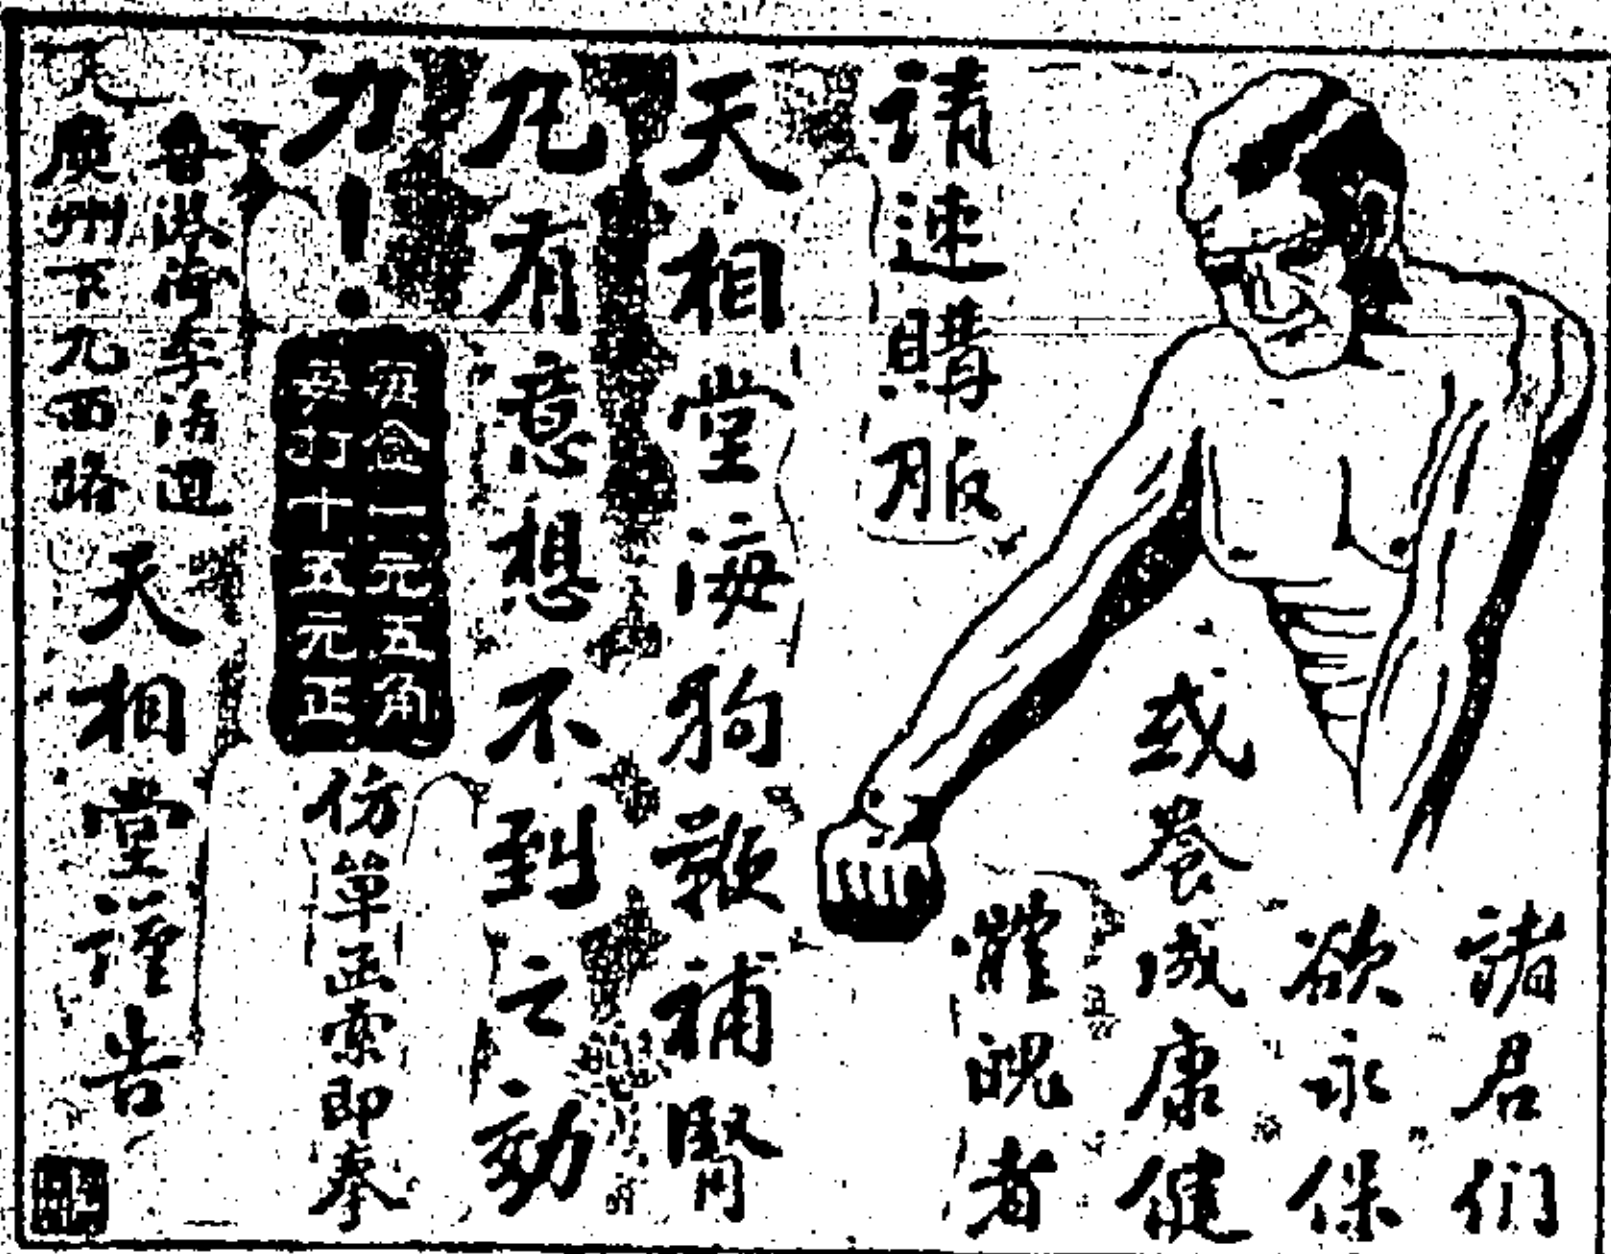 諸君們
欲永保
或養成康健
體魄者
請速購服
天相堂海狗鞭補腎
丸有意想不到之効
力！
每盒一元五角
每打十五元正
仿單函索即奉
香港荷李活道
廣州下九西路
天相堂謹告